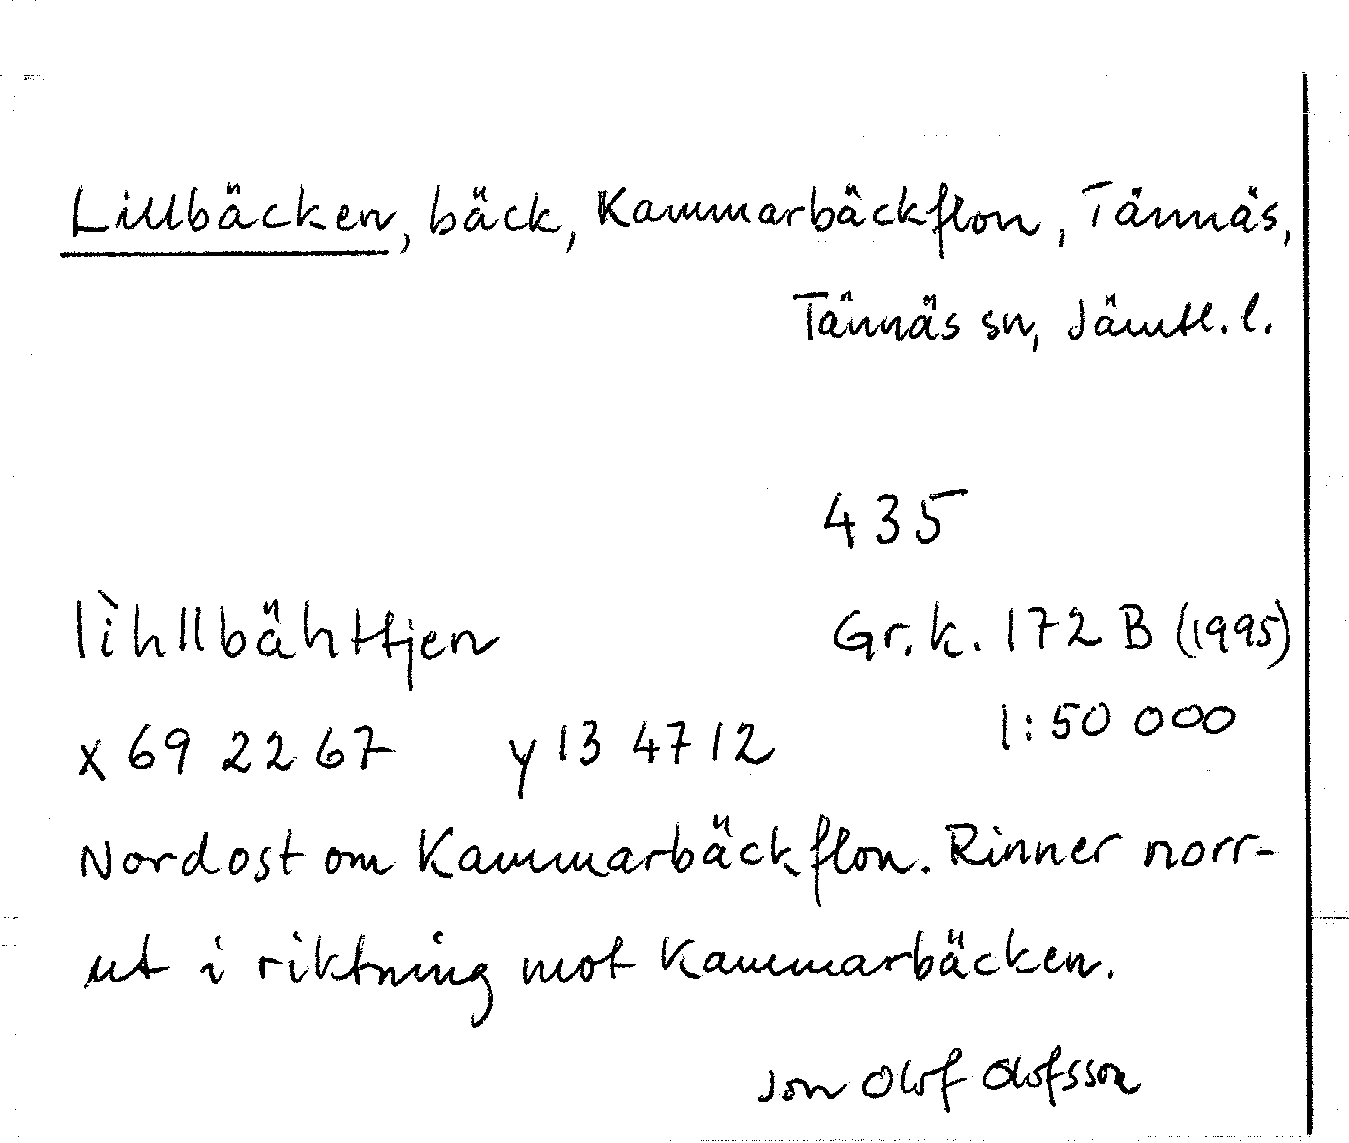 Lillbäcken, bäck, Kammarbäckflon, Tännäs,
Tännäs sn, Jämtl. l.
435
lìhllbähttjen Gr.k. 172 B (1995)
x 69 22 67 y 13 47 12 1:50 000
Nordost om Kammarbäckflon. Rinner norr-
ut i riktning mot Kammarbäcken.
Jon Olof Olofsson